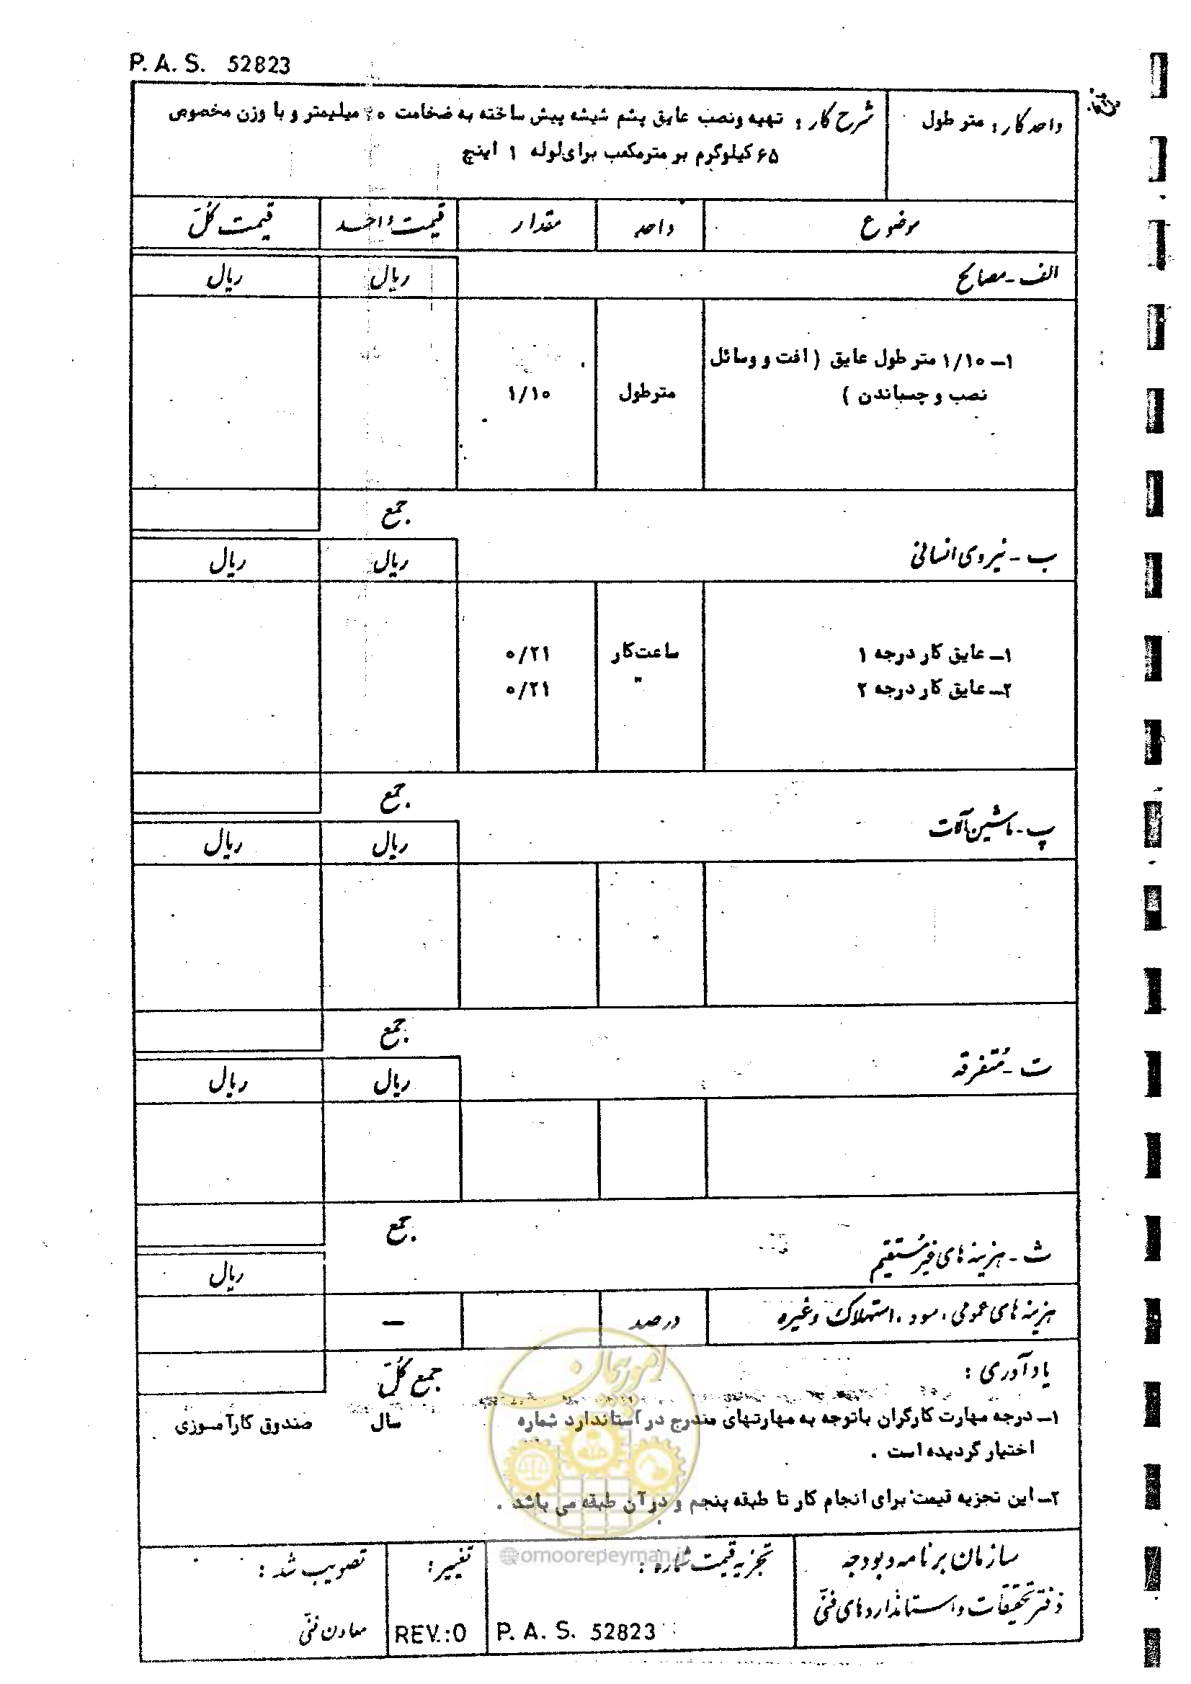 P. A. S. 52823
واحد کار : متر طول
شرح کار : تهیه ونصب عایق پشم شیشه پیش ساخته به ضخامت میلیمتر و با وزن مخصوص
۶۵ کیلوگرم بر مترمکعب برای لوله ۱ اینچ
موضوع واحد مقدار قیمت واحد قیمت کل
الف - مصالح ریال ریال
۱ــ ۱/۱۰ متر طول عایق ( افت و وسائل
نصب و چسباندن ) مترطول ۱/۱۰
جمع
ب - نیروی انسانی ریال ریال
۱ــ عایق کار درجه ۱ ساعت کار ۰/۲۱
۲ــ عایق کار درجه ۲ " ۰/۲۱
جمع
پ - ماشین آلات ریال ریال
جمع
ت - متفرقه ریال ریال
جمع
ث - هزینه های غیرمستقیم ریال
هزینه های عمومی ، سود ، استهلاک وغیره درصد —
یادآوری : جمع کل
۱ــ درجه مهارت کارگران باتوجه به مهارتهای مندرج در استاندارد شماره سال صندوق کارآموزی
اختیار گردیده است .
۲ــ این تجزیه قیمت برای انجام کار تا طبقه پنجم و در آن طبقه می باشد .
امور پیمان
@omoorepeyman.ir
سازمان برنامه و بودجه
دفتر تحقیقات و استانداردهای فنی
تجزیه قیمت شماره :
P. A. S. 52823
تغییر :
REV.:0
تصویب شد :
معاون فنی